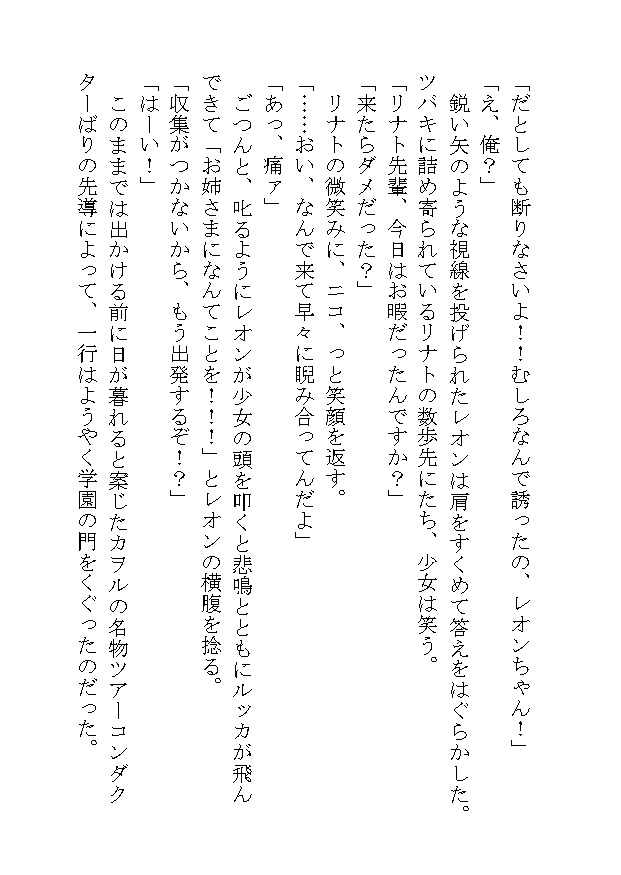 「だとしても断りなさいよ！！むしろなんで誘ったの、レオンちゃん！」
「え、俺？」
　鋭い矢のような視線を投げられたレオンは肩をすくめて答えをはぐらかした。
ツバキに詰め寄られているリナトの数歩先にたち、少女は笑う。
「リナト先輩、今日はお暇だったんですか？」
「来たらダメだった？」
　リナトの微笑みに、ニコ、っと笑顔を返す。
「……おい、なんで来て早々に睨み合ってんだよ」
「あっ、痛ァ」
　ごつんと、叱るようにレオンが少女の頭を叩くと悲鳴とともにルッカが飛ん
できて「お姉さまになんてことを！！！」とレオンの横腹を捻る。
「収集がつかないから、もう出発するぞ！？」
「はーい！」
　このままでは出かける前に日が暮れると案じたカヲルの名物ツアーコンダク
ターばりの先導によって、一行はようやく学園の門をくぐったのだった。